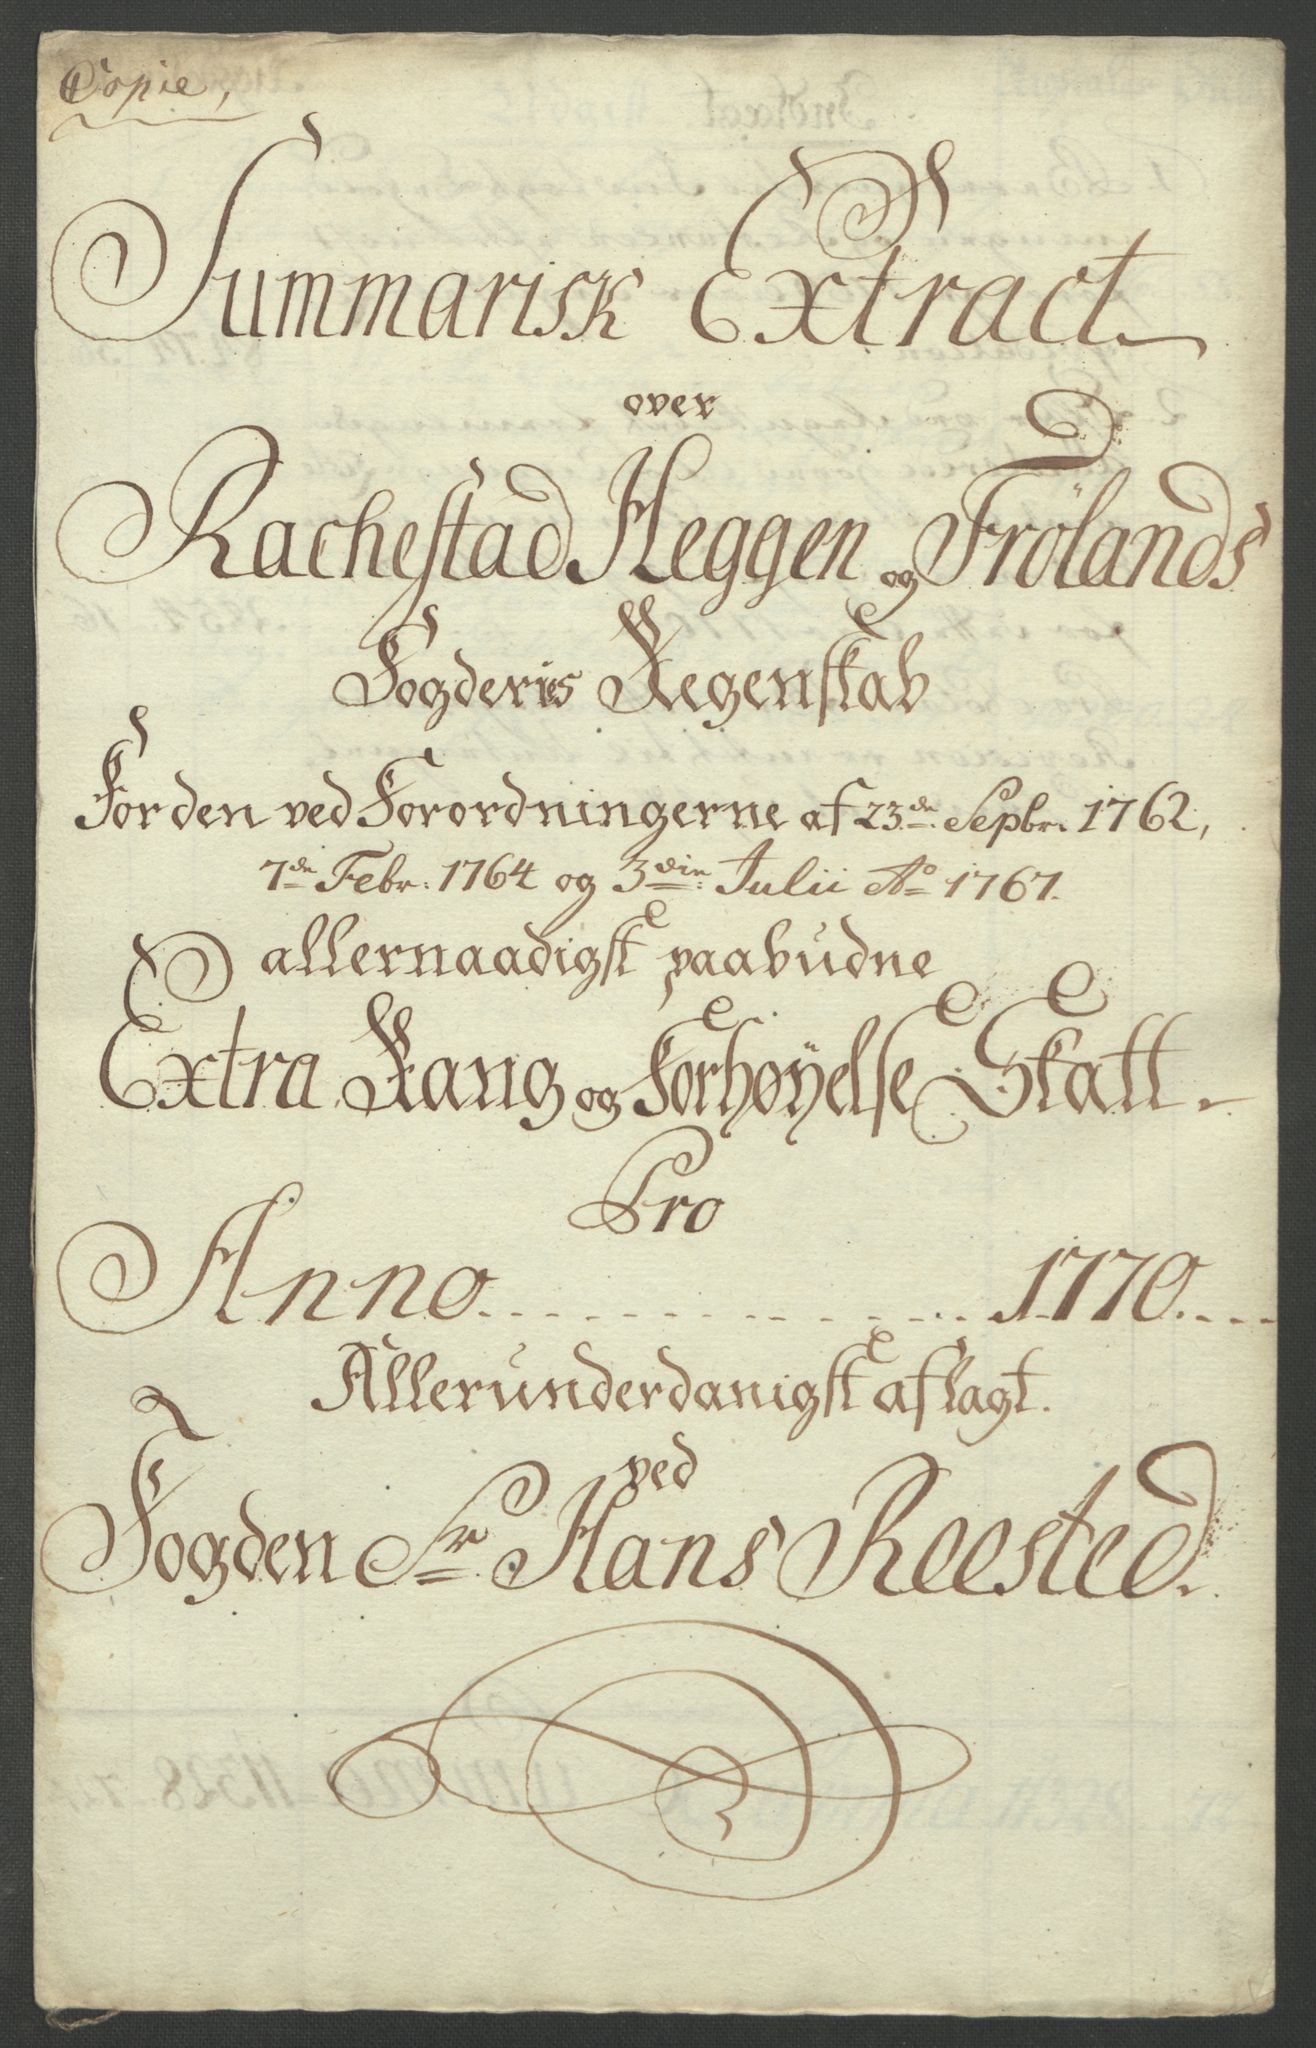 Copie,
Summarisk Extract
over
Rachestad Heggen og Frølands
Fogderies Regenskab
For den ved Forordningerne af 23de Sepbr. 1762,
7de Febr: 1764 og 3die Julii Ao 1767.
allernaadigst paabudne
Extra Rang og Forhøyelse Skatt.
Pro
Anno 1770.
Allerunderdanigst aflagt.
ved
Fogden Sr Hans Reested.